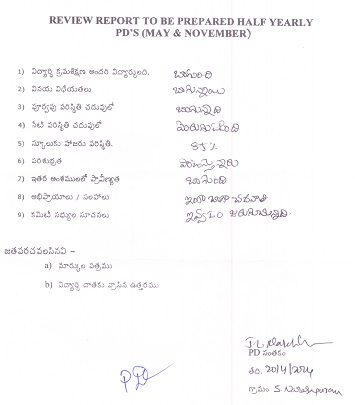 REVIEW REPORT TO BE PREPARED HALF YEARLY
PD'S (MAY & NOVEMBER)
1) విద్యార్థి క్రమశిక్షణ అందరి విద్యార్థులది. బాగుంది
2) వినయ విధేయతలు బాగున్నాయి
3) పూర్వపు పరిస్థితి చదువులో బాగున్నది
4) నేటి పరిస్థితి చదువులో మెరుగుపడింది
5) స్కూలుకు హాజరు పరిస్థితి. 85%
6) పరిశుభ్రత
7) ఇతర అంశములలో ప్రావీణ్యత బాగుంది
8) అభిప్రాయాలు / సలహాలు ఇంకా బాగా చదవాలి
9) కమిటీ సభ్యుల సూచనలు. ఇవ్వడం జరుగుతున్నది.
జతపరచవలసినవి –
a) మార్కుల పత్రము
b) విద్యార్థి దాతకు వ్రాసిన ఉత్తరము
PD సంతకం
తేది. 20/4/2024
గ్రామం S.